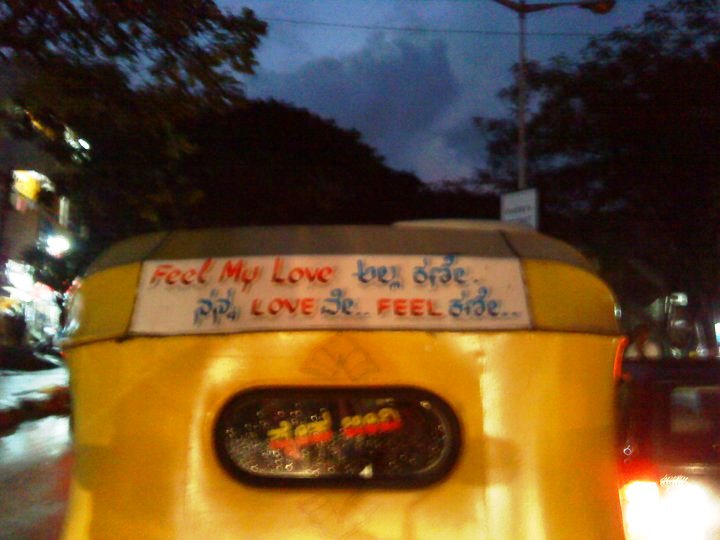 Feel My Love ಅಲ್ಲ ಕಣೇ..
ನನ್ನ LOVE ವೇ.. FEEL ಕಣೇ...